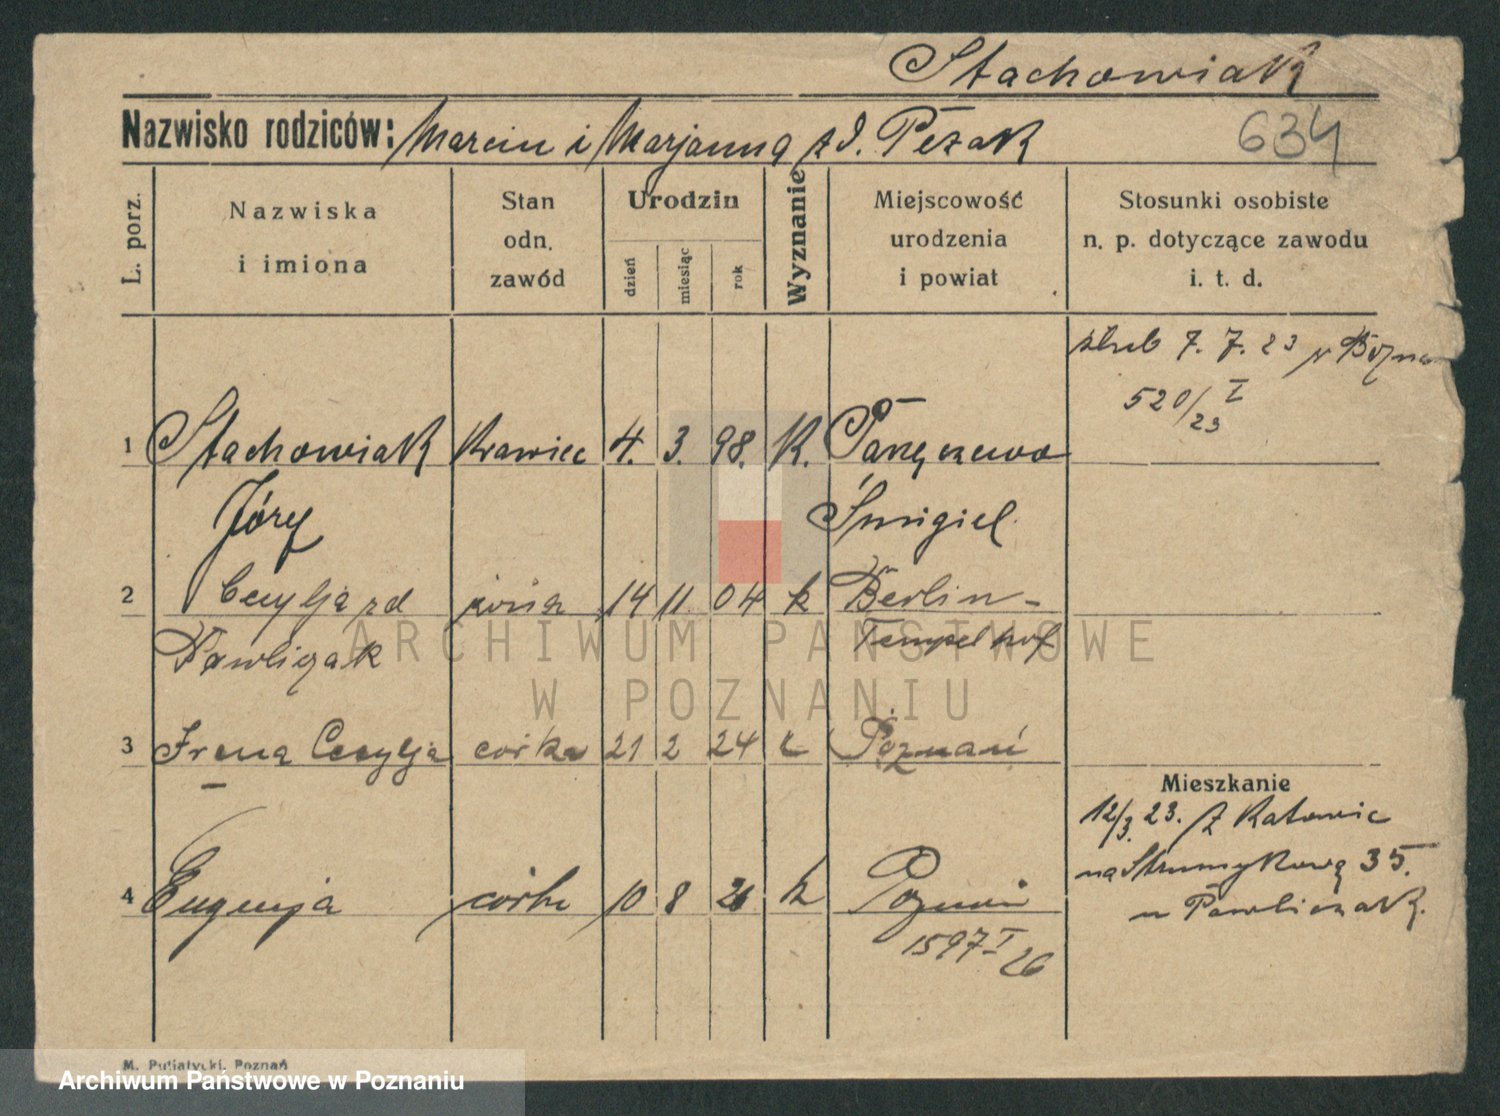 Stachowiak
Nazwisko rodziców: Marcin i Marjanna z d. Pezak
634
L. porz.
Nazwiska
i imiona
Stan
odn.
zawód
Urodzin
dzień
miesiąc
rok
Wyznanie
Miejscowość
urodzenia
i powiat
Stosunki osobiste
n. p. dotyczące zawodu
i. t. d.
ślub 7. 7. 23 w Pozna
520/23 I
1 Stachowiak Krawiec 4. 3. 98. K.
Józef
Śmigiel
2 Cecylja zd żona 14 11 04 k Berlin-
Pawliczak Tempelhof
3 Irena Cecylja córka 21 2 24 k Poznań
Mieszkanie
12/3. 23. z Katowic
na Strumykową 35.
u Pawliczak.
4 Eugenja córka 10 8 26 k Poznań
1597 I 26
ARCHIWUM PAŃSTWOWE
W POZNANIU
M. Putiatycki, Poznań
Archiwum Państwowe w Poznaniu